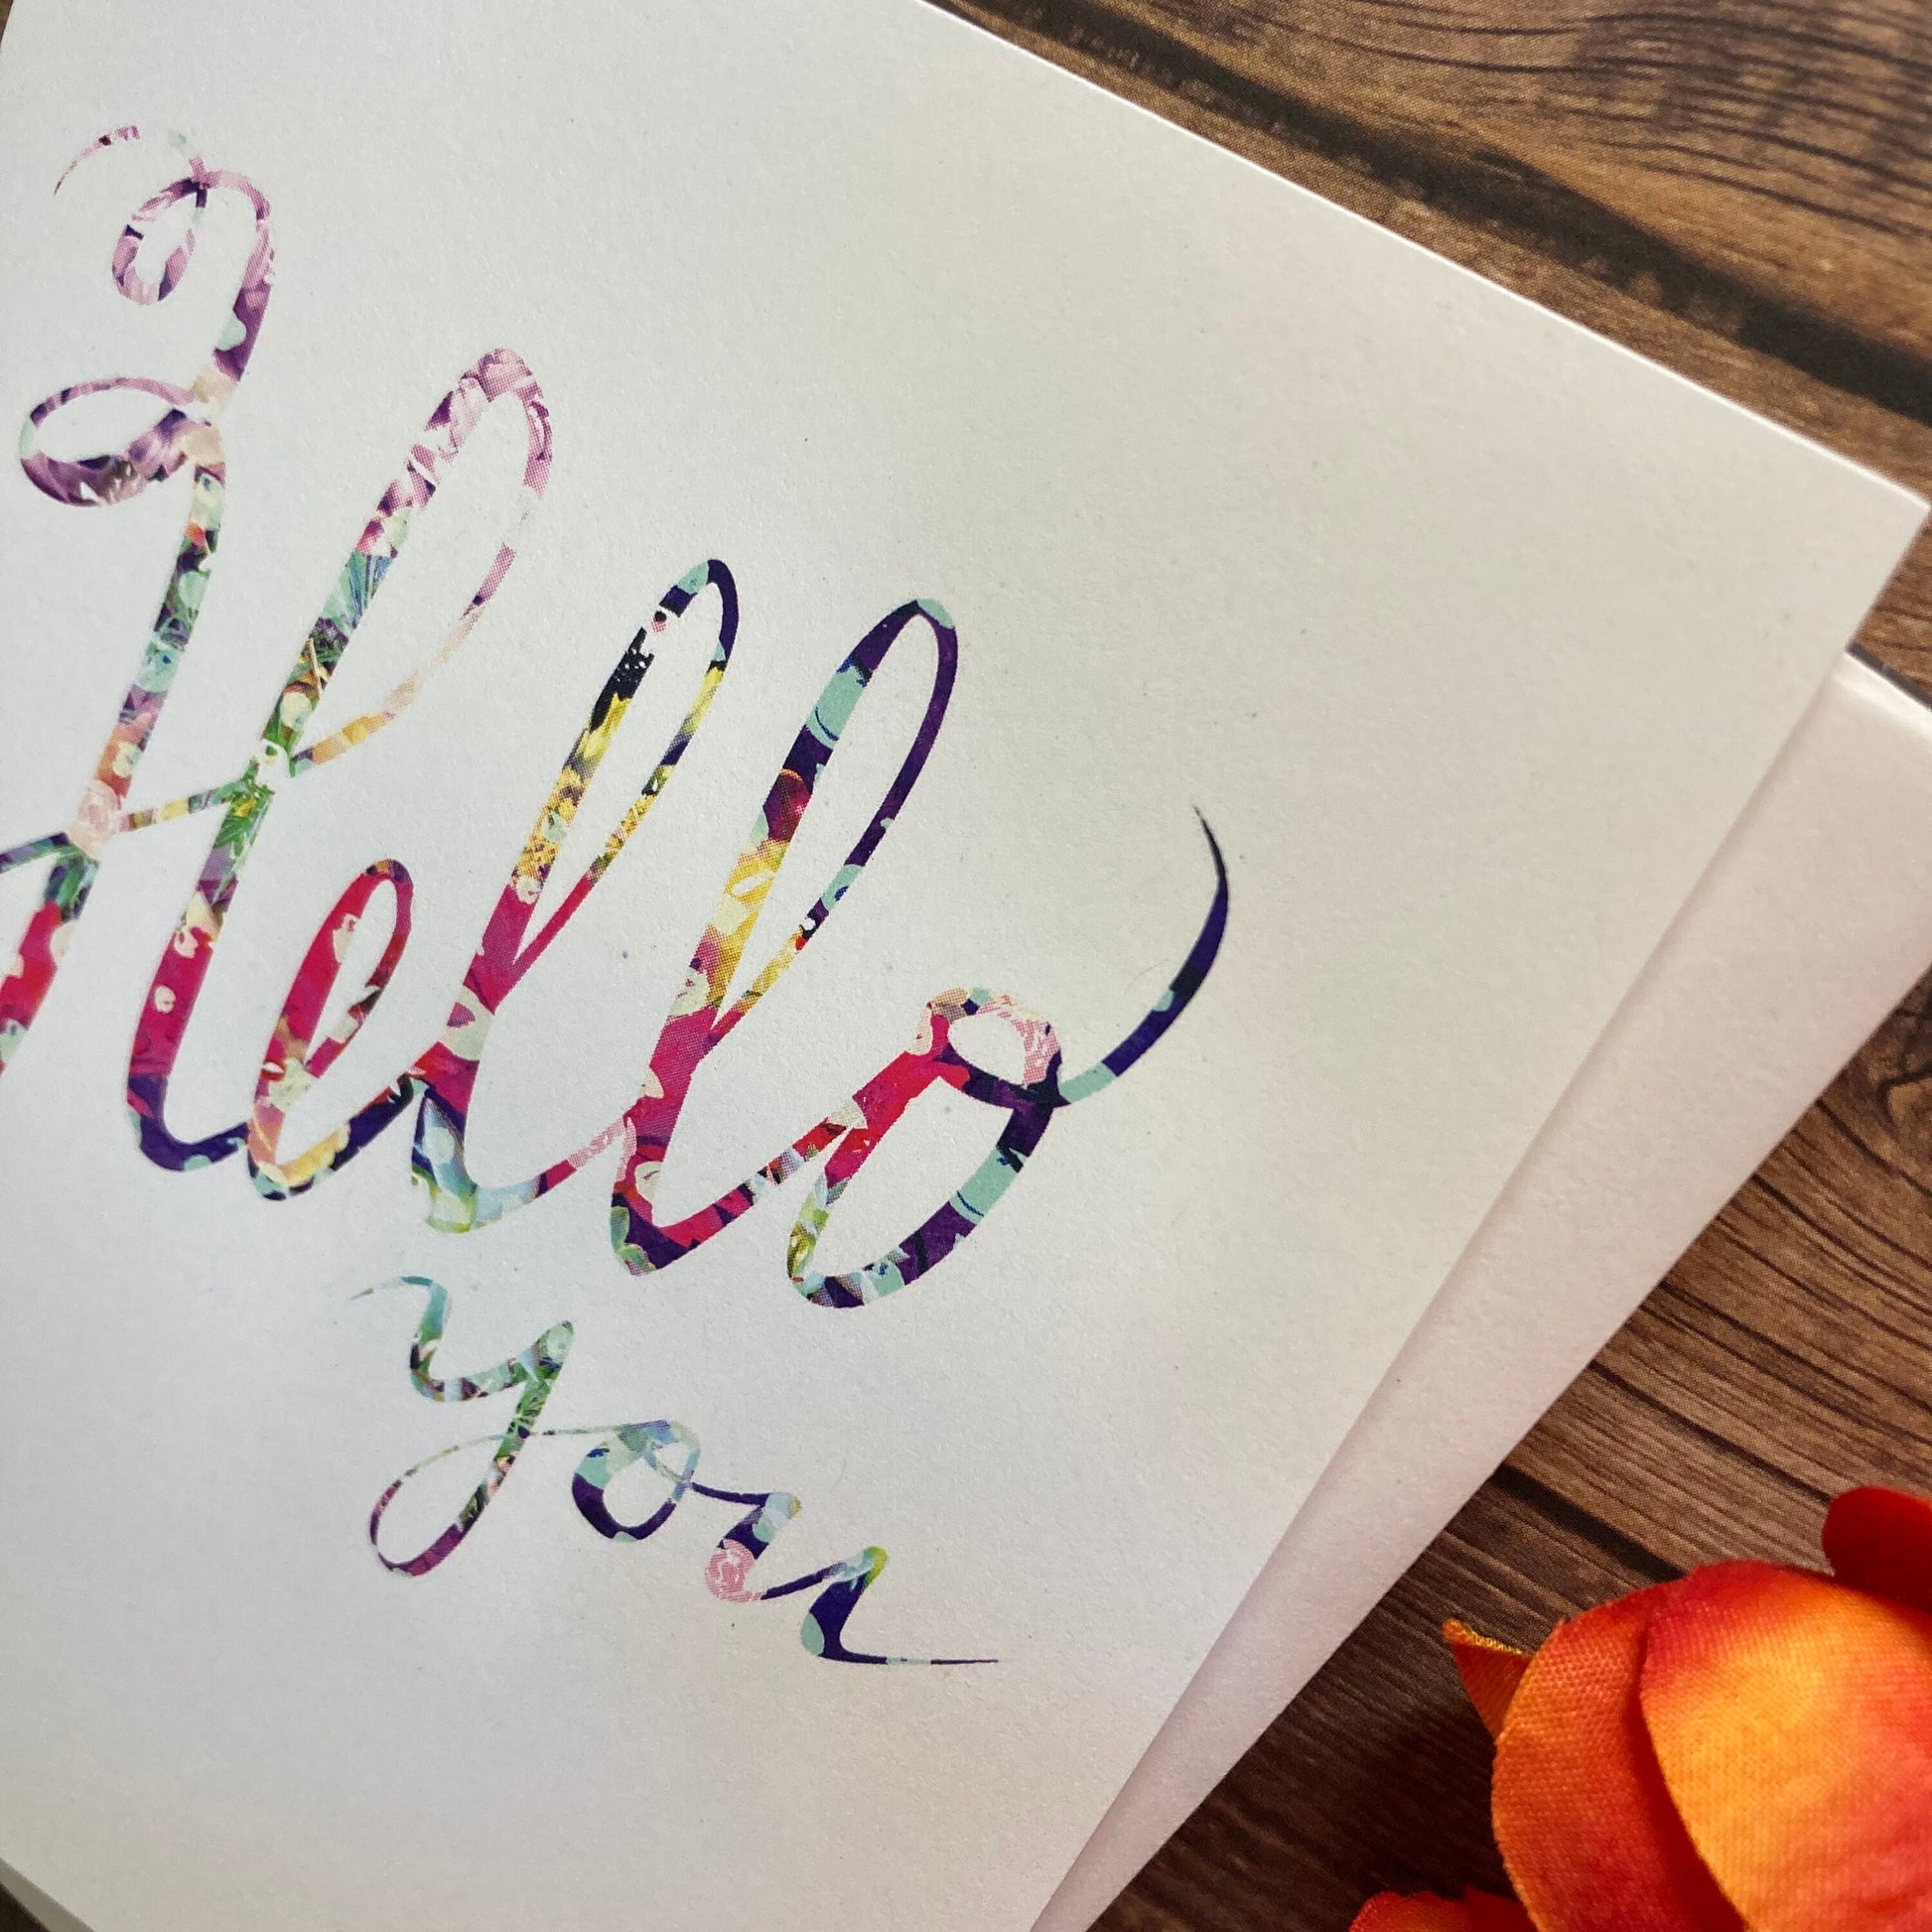 Hello
you